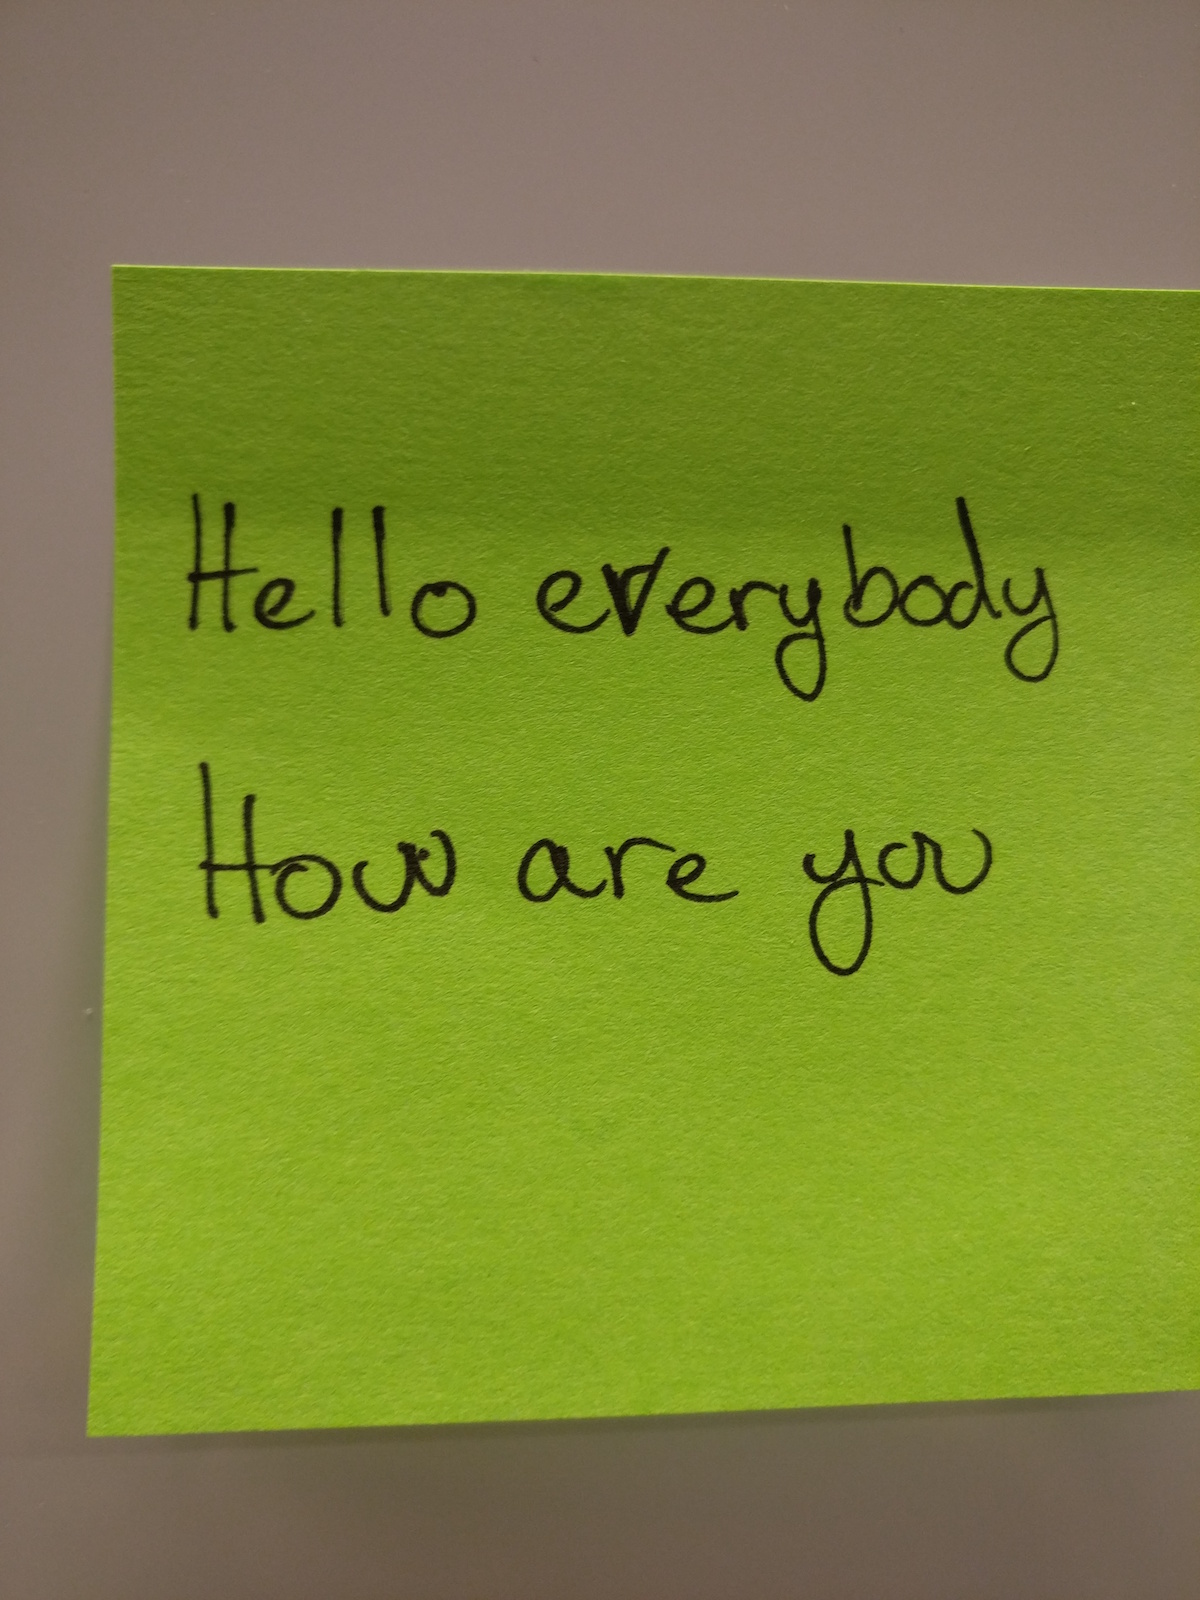 Hello everybody
How are you